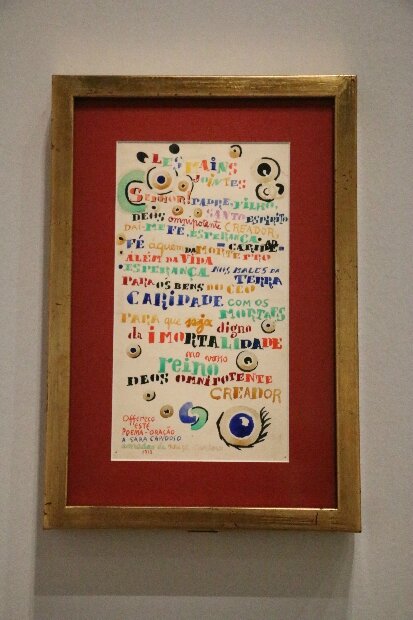 LES MAINS
JOINTES
SENHOR: PADRE, FILHO,
SANTO ESPIRITO
DEOS omnipotente CREADOR,
DAI-ME FÉ, ESPERANÇA,
CARIDADE
FÉ aquem DA MORTE PRO
ALÉM DA VIDA
ESPERANÇA NOS MALES DA
TERRA
PARA OS BENS DO CEO
CARIDADE COM OS
MORTAES
PARA que seja digno
da IMORTALIDADE
no vosso
reino
DEOS OMNIPOTENTE
CREADOR
Offereço
ESTE
POEMA-ORAÇÃO
A SARA CARDOSO
amadeo de souza cardoso